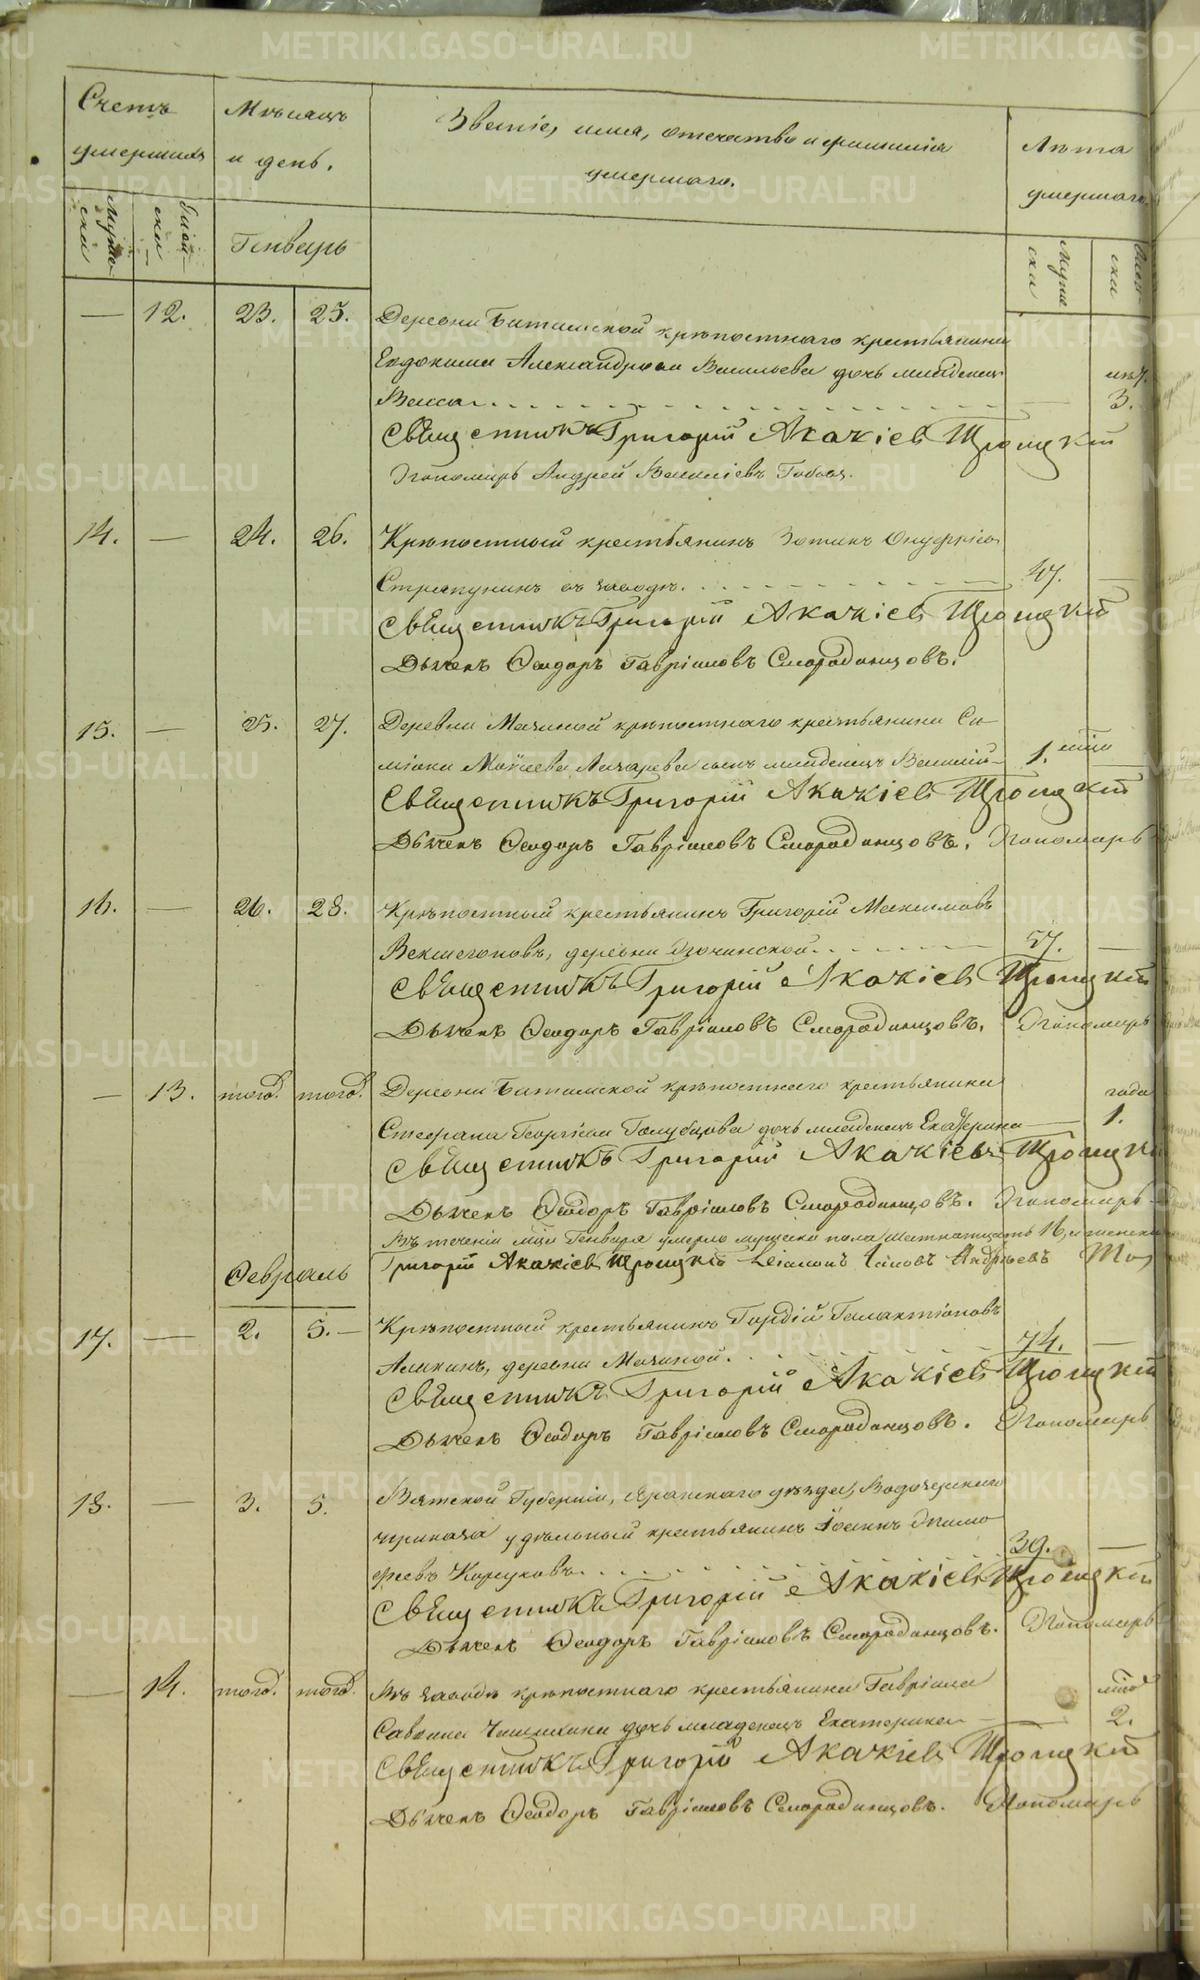 METRIKI.GASO-URAL.RU
Счетъ умершихъ
Мѣсяцъ и день.
Званіе, имя, отечество и фамилія умершаго.
Лѣта умершаго.
Мужески
Женски
Генварь
Мужески
Женски
— 12. 23. 25. Деревни крѣпостнаго крестьянина
Евдокима Александрова Васильева дочь младенецъ
Васса — 3.
Священникъ Григорій Акакіевъ Троицкій
Пономарь Андрей Василіевъ
14. — 24. 26. Крѣпостный крестьянинъ Зотикъ Онуфріевъ
Стряпунинъ въ заводѣ. 47. —
Священникъ Григорій Акакіевъ Троицкій
Дьяченъ Ѳеодоръ Гавріиловъ Смородинцовъ.
15. — 25. 27. Деревни крѣпостнаго крестьянина Си-
міона Моѵсеева сынъ младенецъ Василій — 1. —
Священникъ Григорій Акакіевъ Троицкій
Дьяченъ Ѳеодоръ Гавріиловъ Смородинцовъ. Пономарь
16. — 26. 28. Крѣпостный крестьянинъ Григорій Максимовъ
деревни 57. —
Священникъ Григорій Акакіевъ Троицкій
Дьяченъ Ѳеодоръ Гавріиловъ Смородинцовъ. Пономарь
— 13. тогд. тогд. Деревни крѣпостнаго крестьянина
Стефана Георгіева Голубцова дочь младенецъ Екатерина — года 1.
Священникъ Григорій Акакіевъ Троицкій
Дьяченъ Ѳеодоръ Гавріиловъ Смородинцовъ. Пономарь
Въ теченіи Генваря умерло мужеска пола шестнатцать 16, и женска
Григорій Акакіевъ Троицкій Андреевъ
Февраль
17. — 2. 5. — Крѣпостный крестьянинъ Гордій Галактіоновъ
Аликинъ, деревни 74. —
Священникъ Григорій Акакіевъ Троицкій
Дьяченъ Ѳеодоръ Гавріиловъ Смородинцовъ. Пономарь
18. — 3. 5. Вятской Губерніи, Яранскаго уѣзда,
приказа удѣльный крестьянинъ Іоаннъ Тимо-
феевъ 39. —
Священникъ Григорій Акакіевъ Троицкій
Дьяченъ Ѳеодоръ Гавріиловъ Смородинцовъ. Пономарь
— 14. тогд. тогд. Въ заводѣ крѣпостнаго крестьянина Гавріила
Саввина дочь младенецъ Екатерина — 2.
Священникъ Григорій Акакіевъ Троицкій
Дьяченъ Ѳеодоръ Гавріиловъ Смородинцовъ. Пономарь